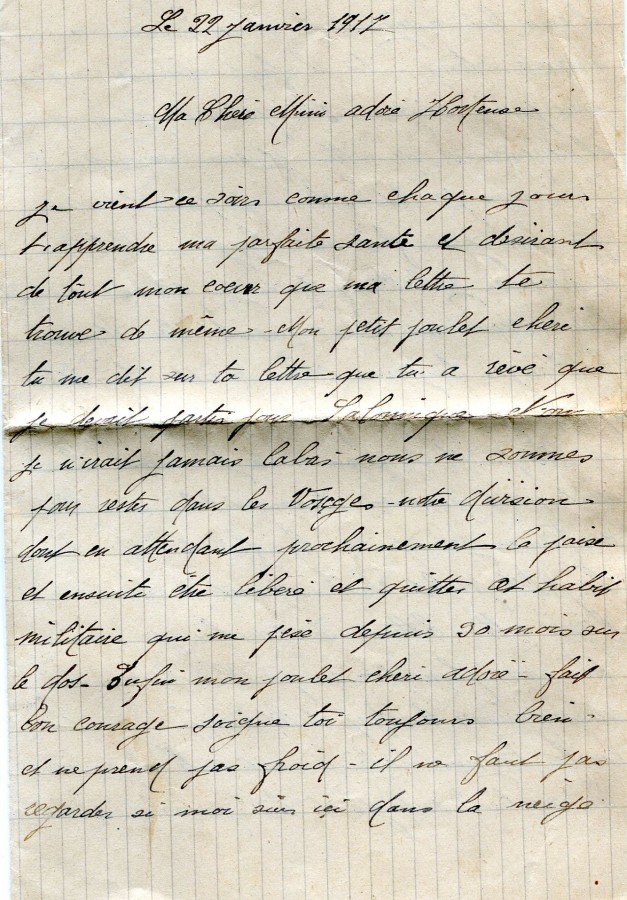 Le 22 Janvier 1917
Ma Chere Mimi adoré Hortense
je vient ce soirs comme chaque jours
t'apprendre ma parfaite santé et desirant
de tout mon coeur que ma lettre te
trouve de même - Mon petit poulet cheri
tu me dit sur ta lettre que tu a rêvé que
je devait partir pour Salonnique - Non
je n'irait jamais labas nous ne sommes
pour rester dans les Vosges - notre division
dont en attendant prochainement la paise
et ensuite être liberé et quitter cet habit
militaire qui me pèse depuis 30 mois sur
le dos - Enfin mon poulet cheri adoré - fait
bon courage soigne toi toujours bien
et ne prend pas froid - il ne faut pas
regarder si moi suis ici dans la neige